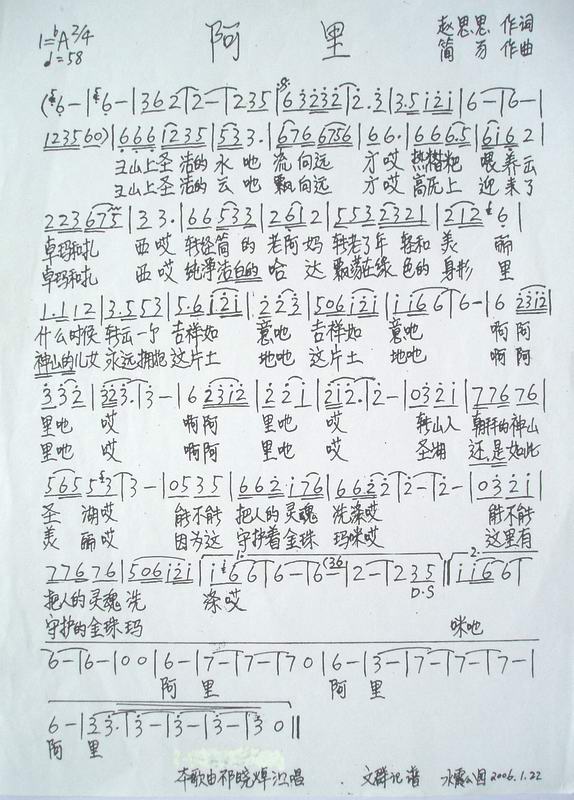 阿里
1=♭A 2/4
♩=58
赵思思 作词
简芳 作曲
(6-|6-|362|2-|235|63232|2.3|3.5121|6-|6-|
123560)|6661235|533.|6766756|66.|6666.5|6162|
雪山上圣洁的水吔流向远方哎热糌粑喂养云
雪山上圣洁的云吔飘向远方哎高原上迎来了
223675|33.|66533|2612|5532321|2126|
卓玛和扎西哎转经筒的老阿妈转老了年轻和美丽
卓玛和扎西哎纯净洁白的哈达飘荡在绿色的身形里
1.112|3.553|5.6121|223|506121|1166|6-|62312|
什么时候转云一个吉祥如意吔吉祥如意吔啊阿
神山的儿女永远拥抱这片土地吔这片土地吔啊阿
332|323.|3-|62312|221|212.|2-|0321|77676|
里吔哎啊阿里吔哎转山人朝拜的神山
里吔哎啊阿里吔哎圣湖还是如此
56553|3-|0535|662176|6622|2-|2-|0321|
圣湖哎能不能把人的灵魂洗涤哎能不能
美丽哎因为这守护着金珠玛咪哎这里有
77676|506121|1666|6-|6(36|2-|235 D.S|2.1166|
把人的灵魂洗涤哎
守护的金珠玛咪吔
6-|6-|00|6-|7-|7-|70|6-|3-|7-|7-|7-|
阿里阿里
6-|323.|3-|3-|3-|3-|30‖
阿里
本歌由祁晓焯演唱 . 文群记谱 2006.1.22